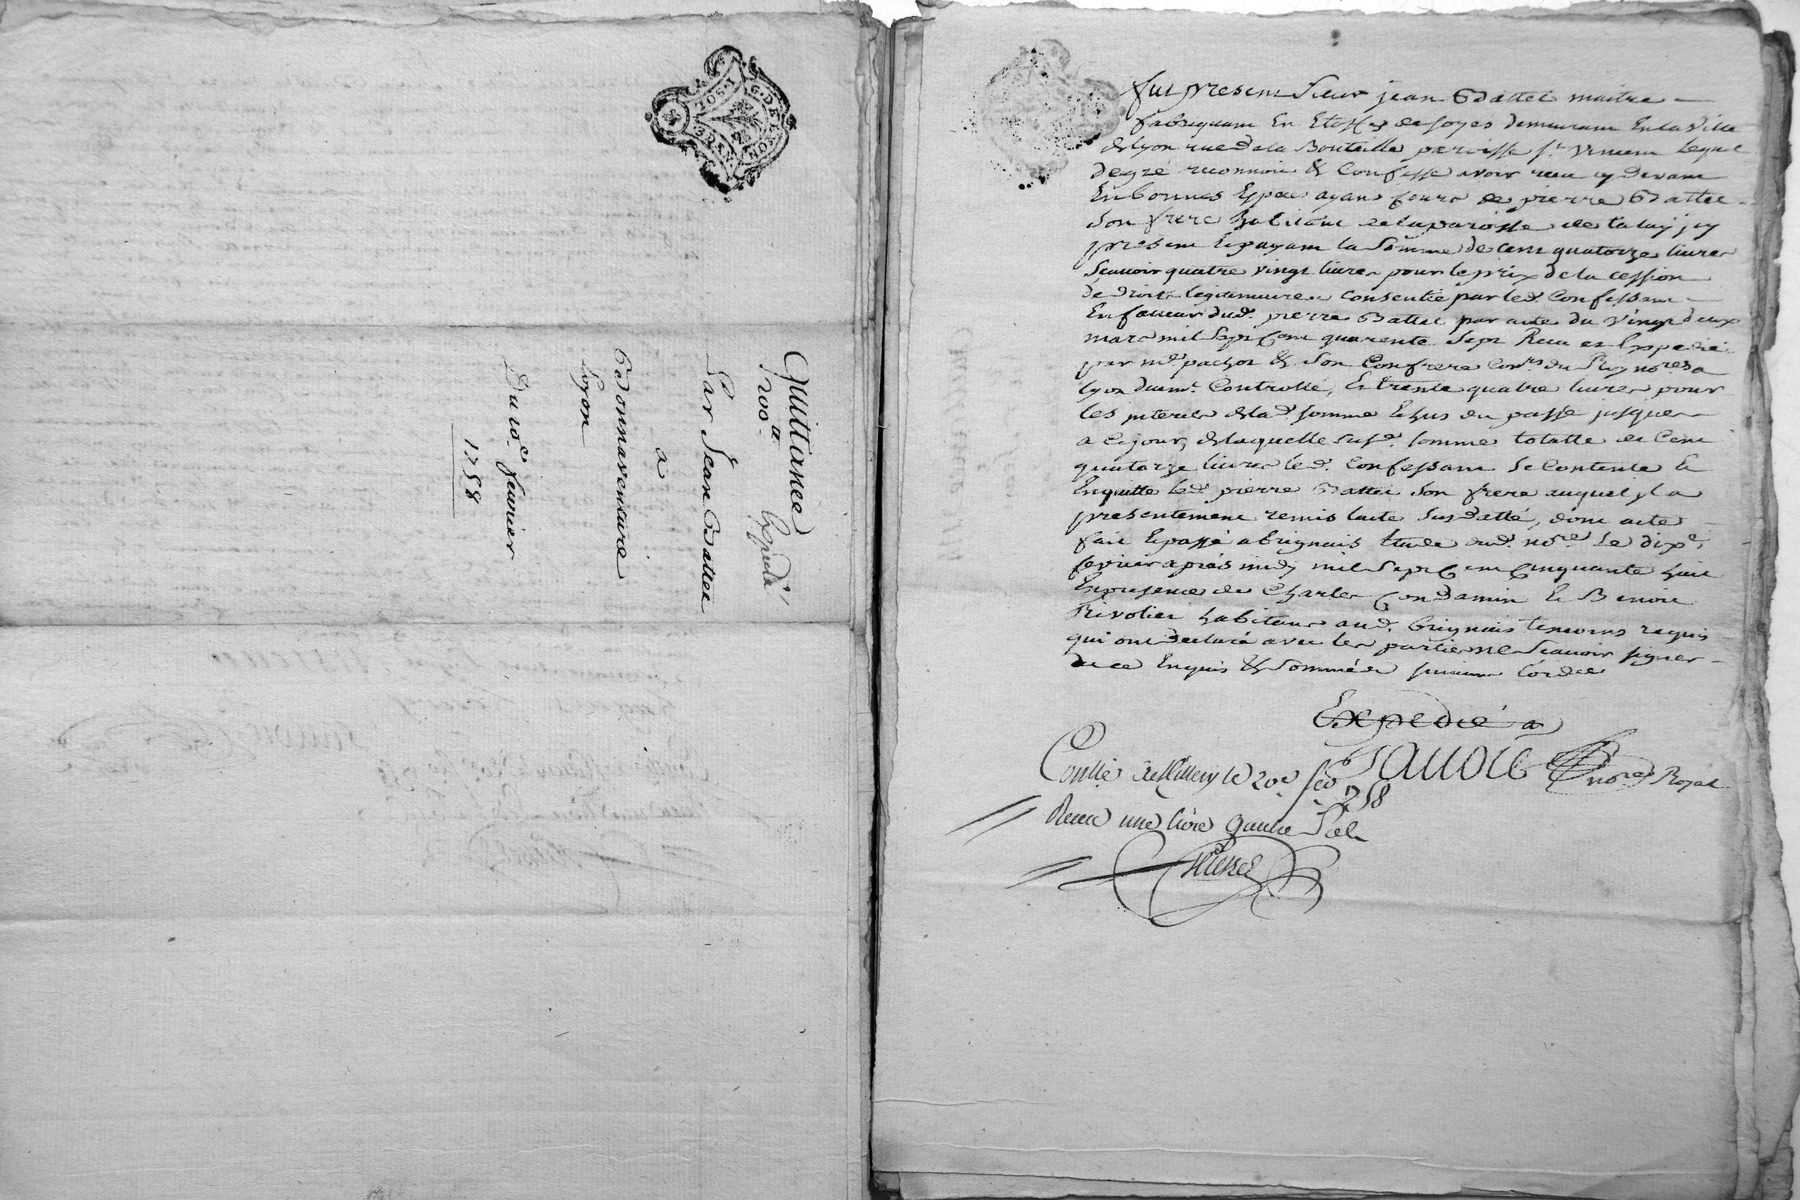 Quittance
1200.tt Expedié
Par Jean Gattet
a
Bonnaventure
Loyon
Du 10e. feuvrier
1758
G. DE LYON
fut present Sieur jean Gattet maitre
fabriquant En Etoffes de soyes demeurant En la Ville
de lyon rue de la Bouteille paroisse st. Vincent Lequel
de gré reconnoit & Confesse avoir reçu cy devant
En bonnes Especes ayant cours de pierre Gattet
son frere habitant de la paroisse de taluy icy
present Et payant la somme de cent quatorze livres
scauoir quatre vingt livres pour le prix de la cession
de droits legitimaires consentie par led. Confessant
En faueur dud. pierre Gattet par acte du vingt deux
mars mil sept cent quarente sept Reçu et Expedié
par me. pachot & son Confrere Cons. du Roy nores. a
lyon duemt. Controllé, Et trente quatre livres pour
les interets de lad. somme Echus du passé jusques
a ce jour, de laquelle susd. somme totalle de cent
quatorze livres led. Confessant se Contente Et
En quitte led. pierre Gattet son frere auquel il a
presentement remis l'acte susdatté, dont acte
fait Et passé a brignais Etude dud. nore. Le dixe.
fevrier après midy mil sept cent cinquante huit
En presence de Charles Condamin Et Benoit
Rivolier habitans aud. brignais temoins requis
qui ont declaré avec les parties ne scauoir signer
de ce Enquis & sommés suivant l'ordce
Expedié a
nore Royal
Conllé a Millery le 20e. feb. 1758
Receu une livre quatre sols